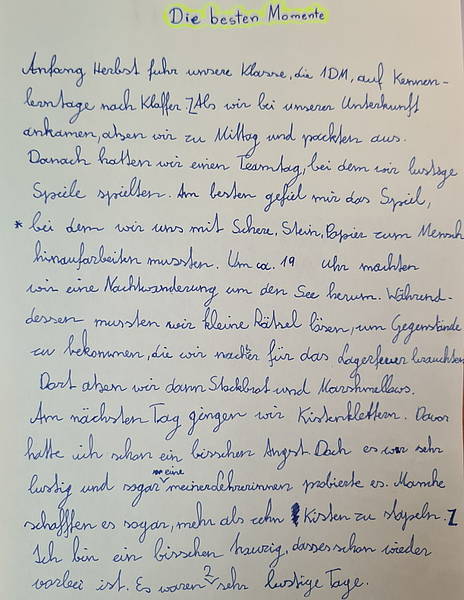 Die besten Momente
Anfang Herbst fuhr unsere Klasse, die 1DM, auf Kennen-
lerntage nach Klaffer. Z Als wir bei unserer Unterkunft
ankamen, aßen wir zu Mittag und packten aus.
Danach hatten wir einen Teamtag, bei dem wir lustige
Spiele spielten. Am besten gefiel mir das Spiel,
* bei dem wir uns mit Schere, Stein, Papier zum Mensch
hinaufarbeiten mussten. Um ca. 19 Uhr machten
wir eine Nachtwanderung um den See herum. Während-
dessen mussten wir kleine Rätsel lösen, um Gegenstände
zu bekommen, die wir nachher für das Lagerfeuer brauchten.
Dort aßen wir dann Stockbrot und Marshmellows.
Am nächsten Tag gingen wir Kistenklettern. Davor
hatte ich schon ein bisschen Angst. Doch es war sehr
lustig und sogar meine Lehrerinnen probierte es. Manche
schafften es sogar, mehr als zehn Kisten zu stapeln. Z
Ich bin ein bisschen traurig, dass es schon wieder
vorbei ist. Es waren 2 sehr lustige Tage.